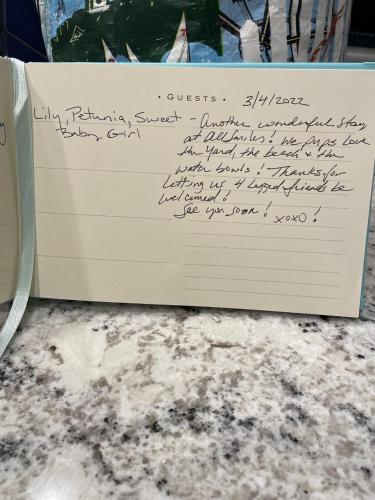 • GUESTS •
3/4/2022
Lily, Petunia, Sweet - Another wonderful stay
Baby Girl at All Smiles! We pups love
the yard, the beach & the
water bowls! Thanks for
letting us 4 legged friends be
welcomed!
See you soon! xoxo!